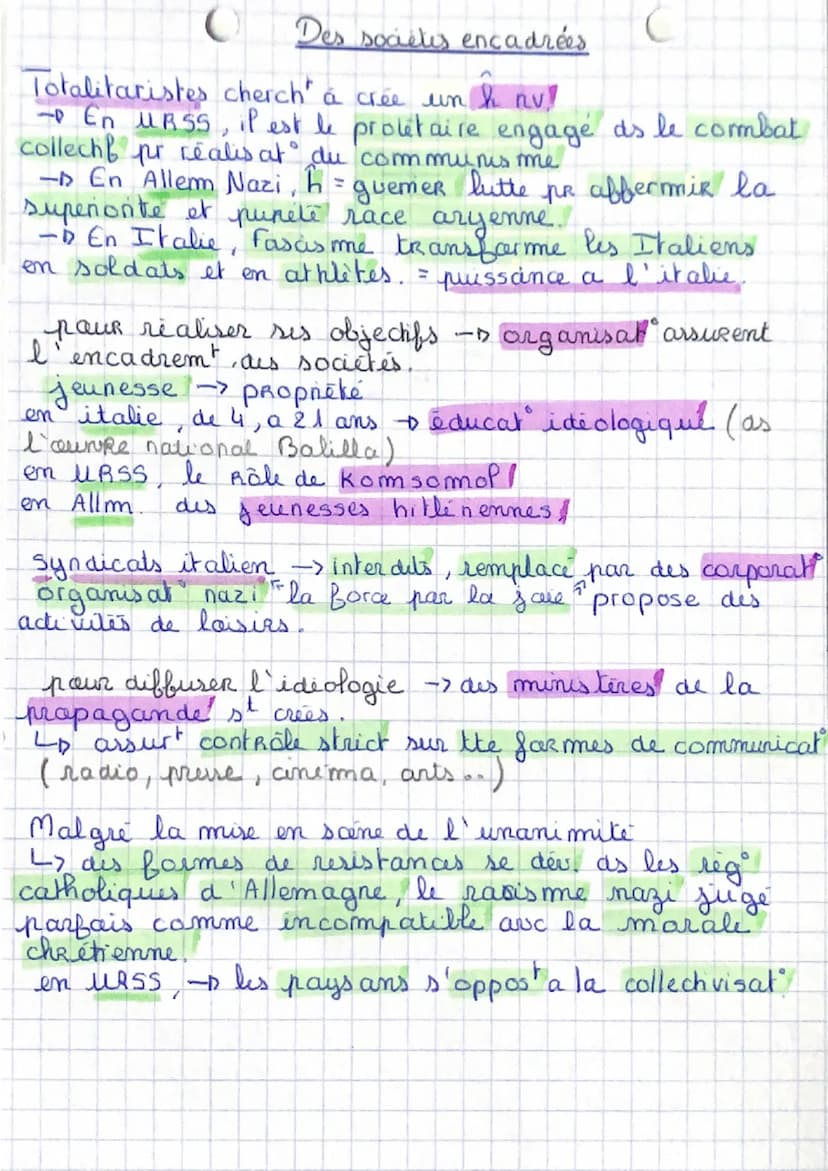 Des sociétés encadrées
Totalitaristes cherch^t à crée un ĥ nv.
→ En URSS, il est le prolétaire engagé ds le combat
collectif pr réalisat° du communisme
→ En Allem Nazi, ĥ = guerrier lutte pr affermir la
supériorité et pureté race aryenne.
→ En Italie, fascisme transforme les Italiens
en soldats et en athlètes. = puissance a l'italie.
pour réaliser ses objectifs → organisat° assurent
l'encadrem^t des sociétés.
jeunesse → propriété
en italie, de 4, a 21 ans → éducat° idéologique (as
l'œuvre national Balilla)
en URSS, le rôle de Komsomol
en Allm. des jeunesses hitlériennes
Syndicats italien → interdits, remplacé par des corporat°
organisat° nazi "la force par la joie" propose des
activités de loisirs.
pour diffuser l'idéologie → des ministères de la
propagande s^t crées.
↳ assur^t contrôle strict sur tte formes de communicat°
(radio, presse, cinéma, arts..)
Malgré la mise en scène de l'unanimité
↳ des formes de resistances se dév. ds les rég°
catholiques d'Allemagne, le racisme nazi jugé
parfois comme incompatible avc la morale
chrétienne.
en URSS, → les paysans s'oppos^t a la collectivisat°